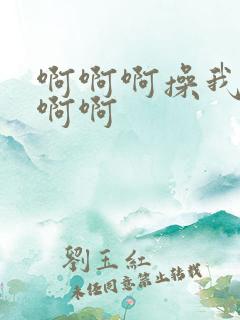 啊啊啊操我
啊啊
劉玉紅
未经同意禁止转载